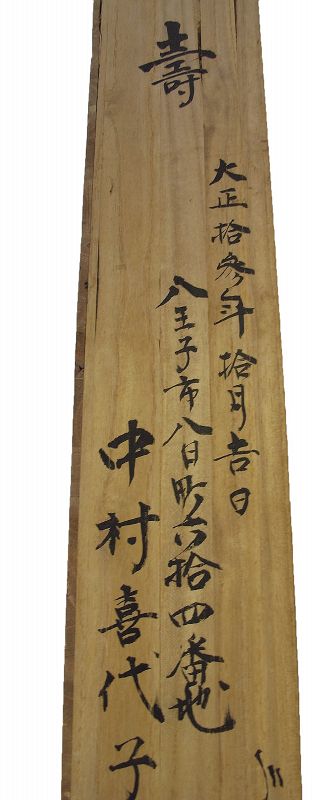 壽
大正拾参年拾月吉日
八王子市八日町六拾四番地
中村喜代子